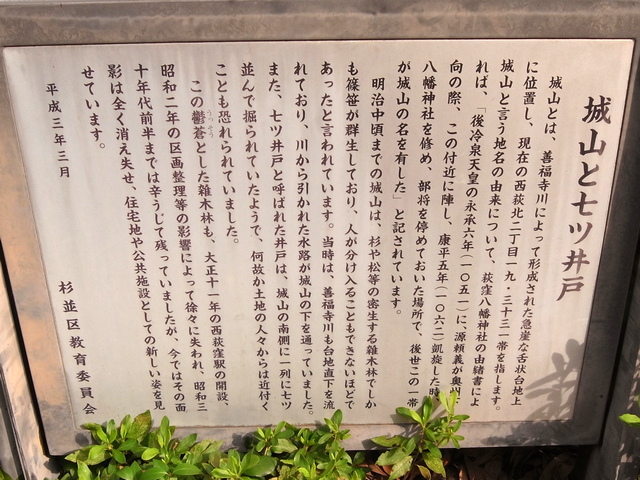 城山と七ツ井戸
城山とは、善福寺川によって形成された急崖な舌状台地上
に位置し、現在の西荻北二丁目一九・三十三一帯を指します。
城山と言う地名の由来について、荻窪八幡神社の由緒書によ
れば、「後冷泉天皇の永承六年(一〇五一)に、源頼義が奥州
向の際、この付近に陣し、康平五年(一〇六二)凱旋した時
八幡神社を修め、部将を停めておいた場所で、後世この一帯
が城山の名を有した」と記されています。
明治中頃までの城山は、杉や松等の密生する雑木林でしか
も篠笹が群生しており、人が分け入ることもできないほどで
あったと言われています。当時は、善福寺川も台地直下を流
れており、川から引かれた水路が城山の下を通っていました。
また、七ツ井戸と呼ばれた井戸は、城山の南側に一列に七ツ
並んで掘られていたようで、何故か土地の人々からは近付く
ことも恐れられていました。
この鬱蒼とした雑木林も、大正十一年の西荻窪駅の開設、
昭和二年の区画整理等の影響によって徐々に失われ、昭和三
十年代前半までは辛うじて残っていましたが、今ではその面
影は全く消え失せ、住宅地や公共施設としての新しい姿を見
せています。
平成三年三月
杉並区教育委員会